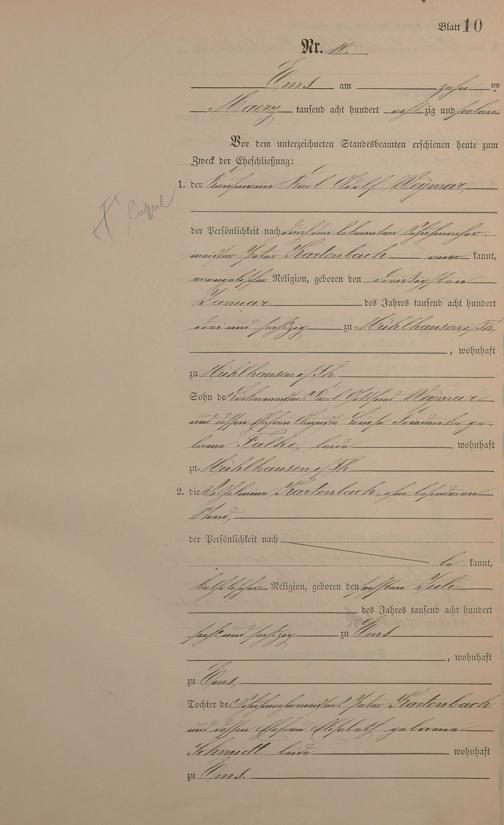 Blatt 10
Nr. 10.
Ems am zehn ten
Maerz tausend acht hundert achtzig und sieben
Vor dem unterzeichneten Standesbeamten erschienen heute zum
Zweck der Eheschließung:
1. der Kaufmann Karl Adolf Wagmar,
der Persönlichkeit nach durch den bekannten
meister Peter Kartenbach kannt,
evangelischer Religion, geboren den dreißigsten
Januar des Jahres tausend acht hundert
drei und sechzig zu Mühlhausen i/Th
, wohnhaft
zu Mühlhausen i/Th
Sohn des Karl Wagmar
und dessen Ehefrau Louise ge-
borene Falke, beide wohnhaft
zu Mühlhausen i/Th
2. die Wilhelmine Kartenbach, ohne besonderen
Stand,
der Persönlichkeit nach
be kannt,
katholischer Religion, geboren den achten Juli
des Jahres tausend acht hundert
sechs und sechzig zu Ems
, wohnhaft
zu Ems,
Tochter des Peter Kartenbach
und dessen Ehefrau Elisabeth geborene
Schmidt, beide wohnhaft
zu Ems.